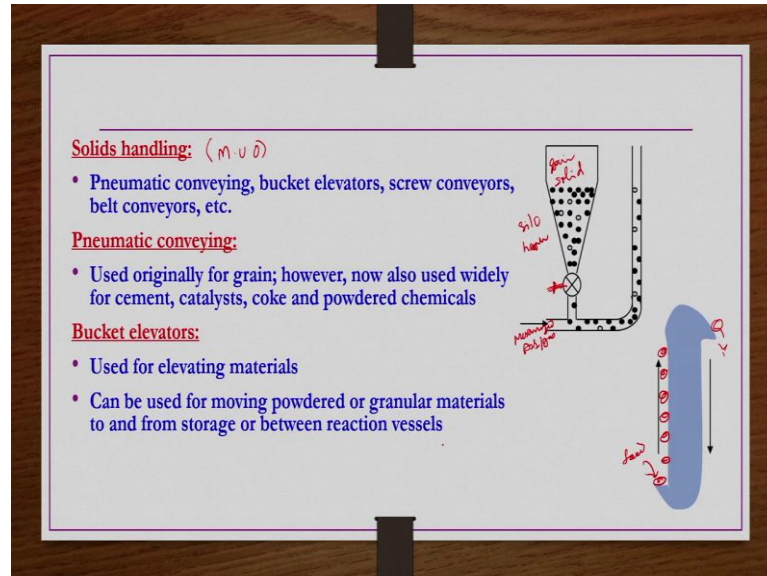 Solids handling: (M.U.O)
• Pneumatic conveying, bucket elevators, screw conveyors,
belt conveyors, etc.
Pneumatic conveying:
• Used originally for grain; however, now also used widely
for cement, catalysts, coke and powdered chemicals
Bucket elevators:
• Used for elevating materials
• Can be used for moving powdered or granular materials
to and from storage or between reaction vessels
solid
silo